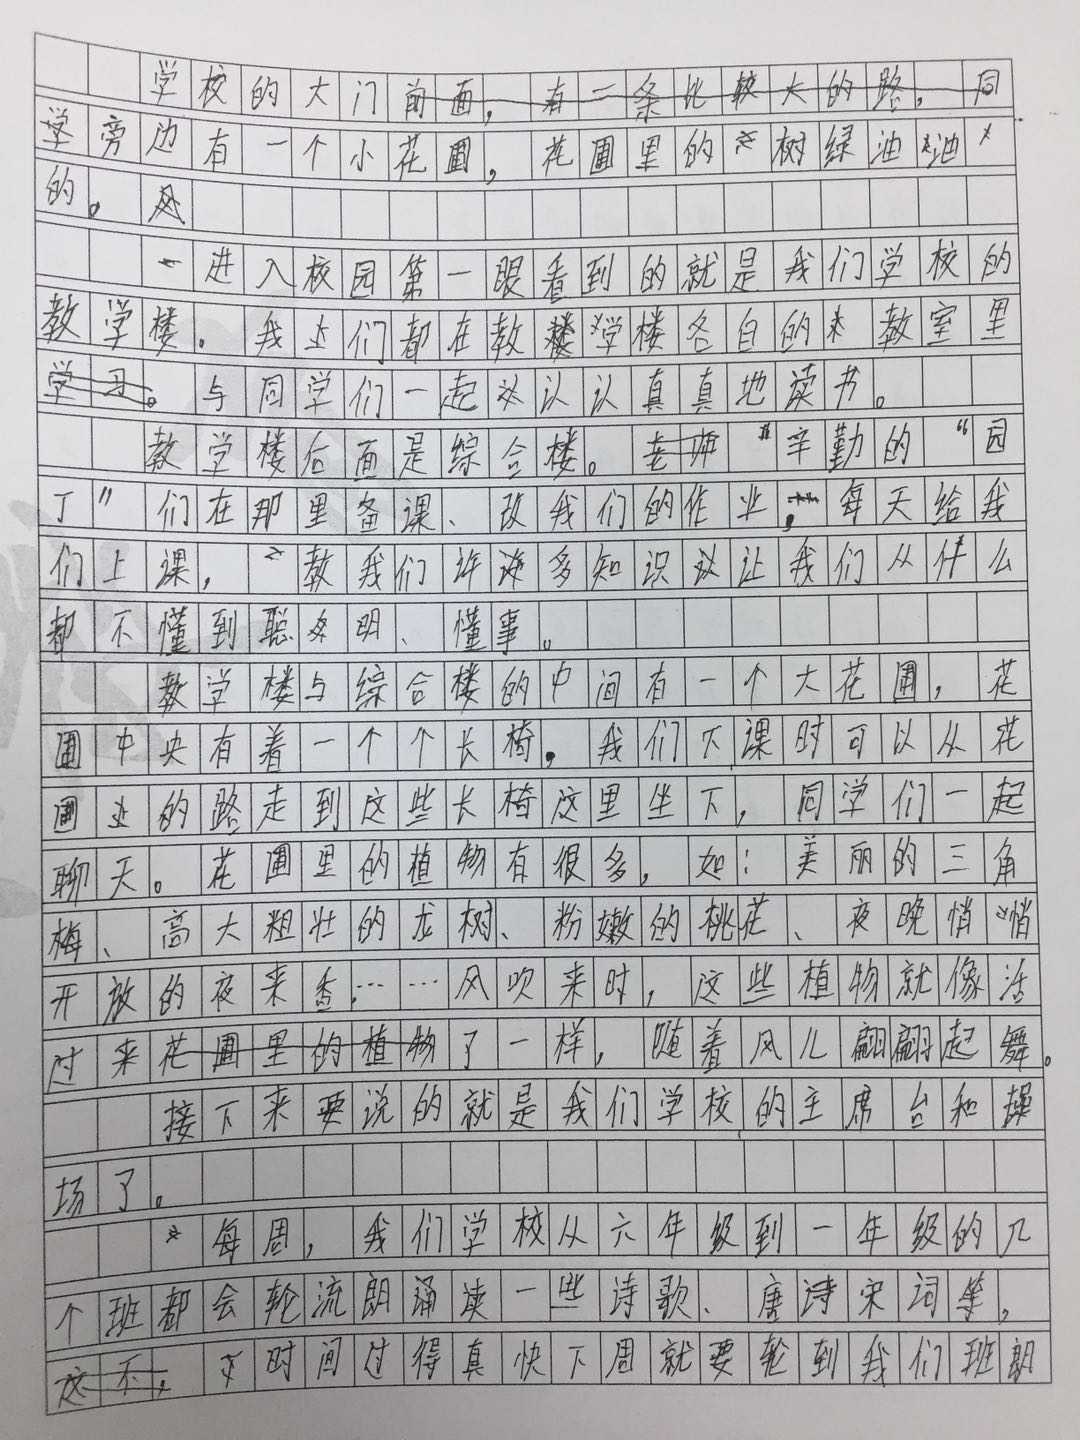 学校的大门前面，有一条比较大的路，同
学旁边有一个小花圃，花圃里的树绿油油
的。风
一进入校园第一眼看到的就是我们学校的
教学楼。我们都在教楼学楼各自的教室里
学习。与同学们一起认认真真地读书。
教学楼后面是综合楼。老师辛勤的“园
丁”们在那里备课、改我们的作业，每天给我
们上课，教我们许多知识让我们从什么
都不懂到聪明、懂事。
教学楼与综合楼的中间有一个大花圃，花
圃中央有着一个个长椅，我们下课时可以从花
圃的路走到这些长椅这里坐下，同学们一起
聊天。花圃里的植物有很多，如：美丽的三角
梅、高大粗壮的龙树、粉嫩的桃花、夜晚悄悄
开放的夜来香……风吹来时，这些植物就像活
过来花圃里的植物了一样，随着风儿翩翩起舞。
接下来要说的就是我们学校的主席台和操
场了。
每周，我们学校从六年级到一年级的几
个班都会轮流朗诵读一些诗歌、唐诗宋词等，
这不，时间过得真快下周就要轮到我们班朗